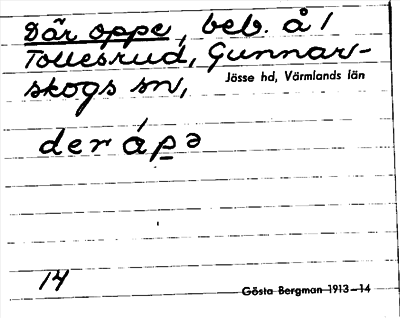 Där oppe, beb. å 1
Tollesrud, Gunnar-
skogs sn,
Jösse hd, Värmlands län
der ápə
14
Gösta Bergman 1913–14